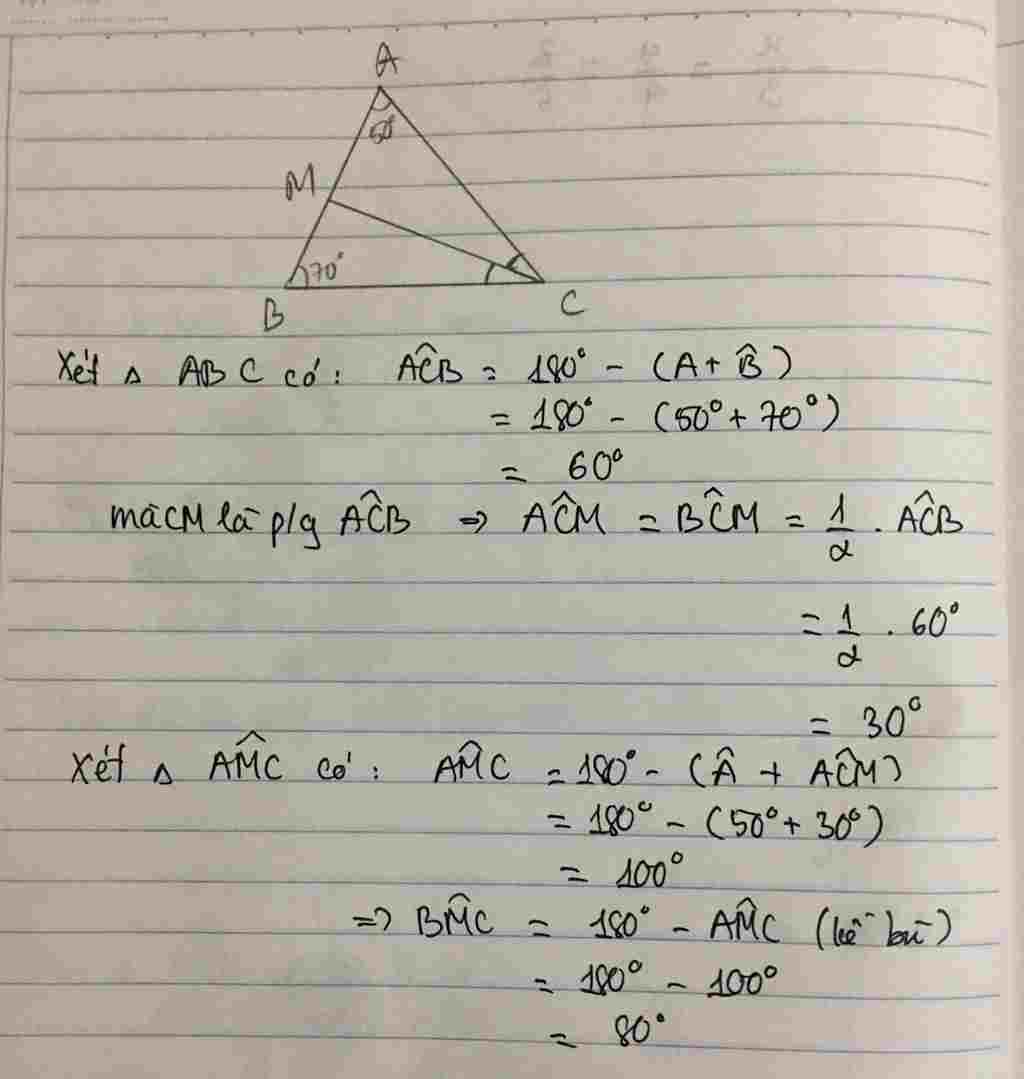 A
50°
M
70°
B
C
Xét Δ ABC có: AĈB = 180° - (A + B̂)
= 180° - (50° + 70°)
= 60°
mà CM là p/g AĈB ⇒ AĈM = BĈM = 1/2 . AĈB
= 1/2 . 60°
= 30°
Xét Δ AM̂C có: AM̂C = 180° - (Â + AĈM)
= 180° - (50° + 30°)
= 100°
=> BM̂C = 180° - AM̂C (kề bù)
= 180° - 100°
= 80°